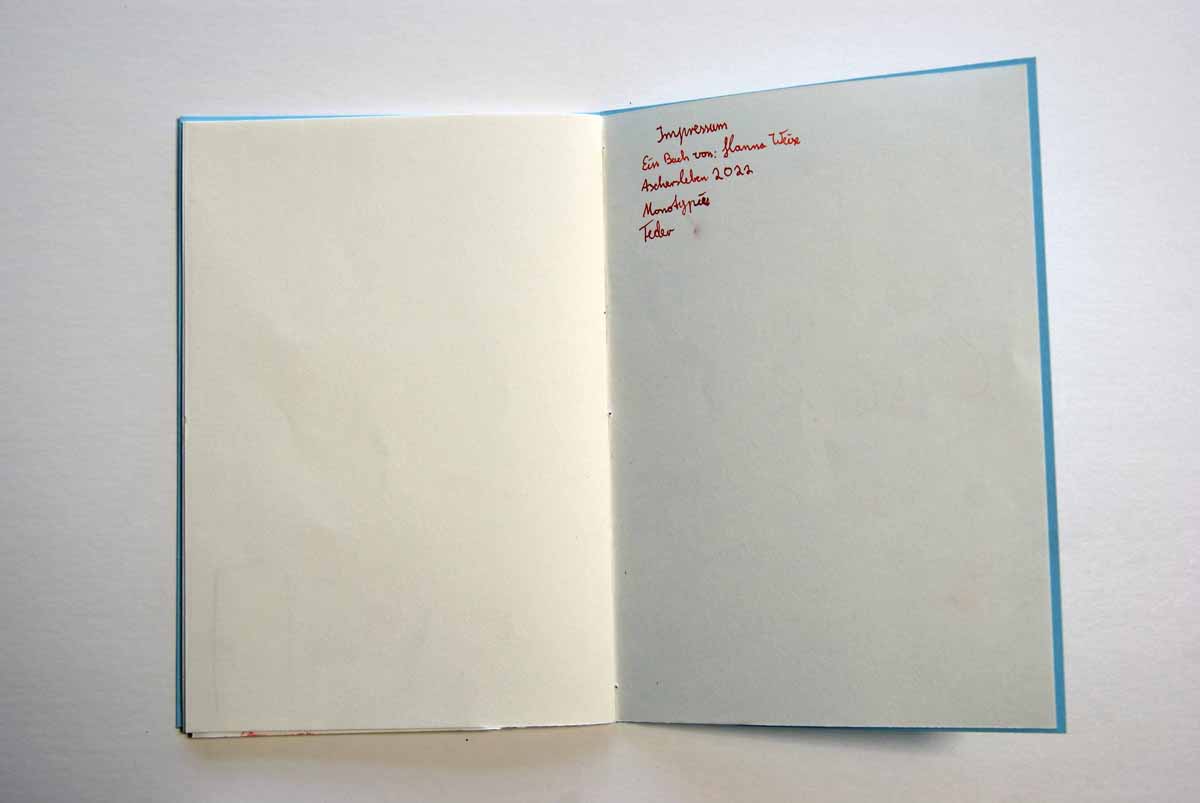 Impressum
Ein Buch von: Hanna Weise
Aschersleben 2022
Monotypie
Feder